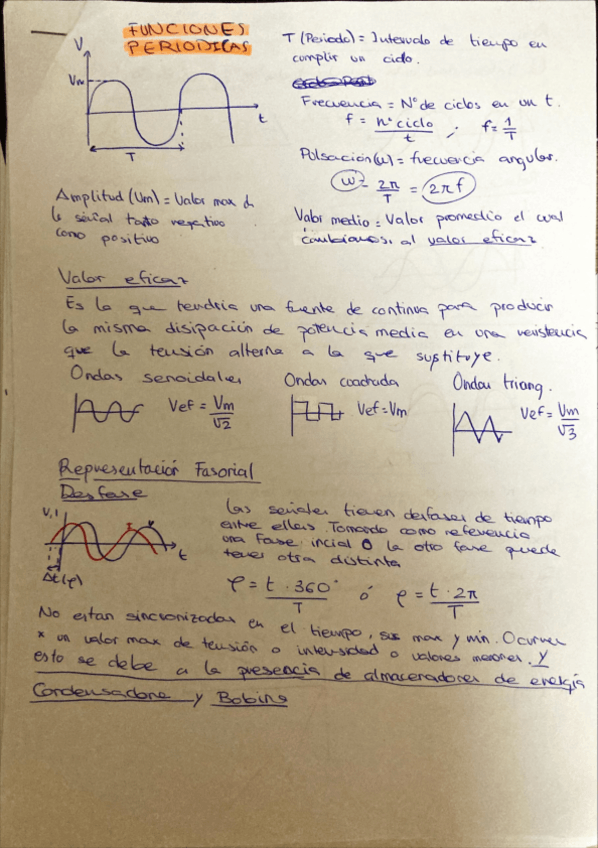 FUNCIONES
PERIODICAS
V
Vm
t
T
T (Periodo) = Intervalo de tiempo en
cumplir un ciclo.
Frecuencia = Nº de ciclos en un t.
f = nº ciclo / t ; f = 1/T
Pulsación (ω) = frecuencia angular.
ω = 2π/T = 2πf
Amplitud (Vm) = Valor max d
la señal tanto negativo
como positivo
Valor medio = Valor promedio el cual
cambiamos. al valor eficaz
Valor eficaz
Es la que tendria una fuente de continua para producir
la misma disipación de potencia media en una resistencia
que la tensión alterna a la que sustituye.
Ondas senoidales
Vef = Vm/√2
Ondas cuadrada
Vef = Vm
Ondas triang.
Vef = Vm/√3
Representación Fasorial
Desfase
V, I
I
V
t
Δt(φ)
Las señales tienen desfases de tiempo
entre ellas. Tomando como referencia
una fase incial 0 la otra fase puede
tener otra distinta
φ = t · 360° / T ó φ = t · 2π / T
No estan sincronizadas en el tiempo, sus max y min. Ocurren
x un valor max de tensión o intensidad o valores menores. Y
esto se debe a la presencia de almacenadores de energía
Condensadore y Bobina